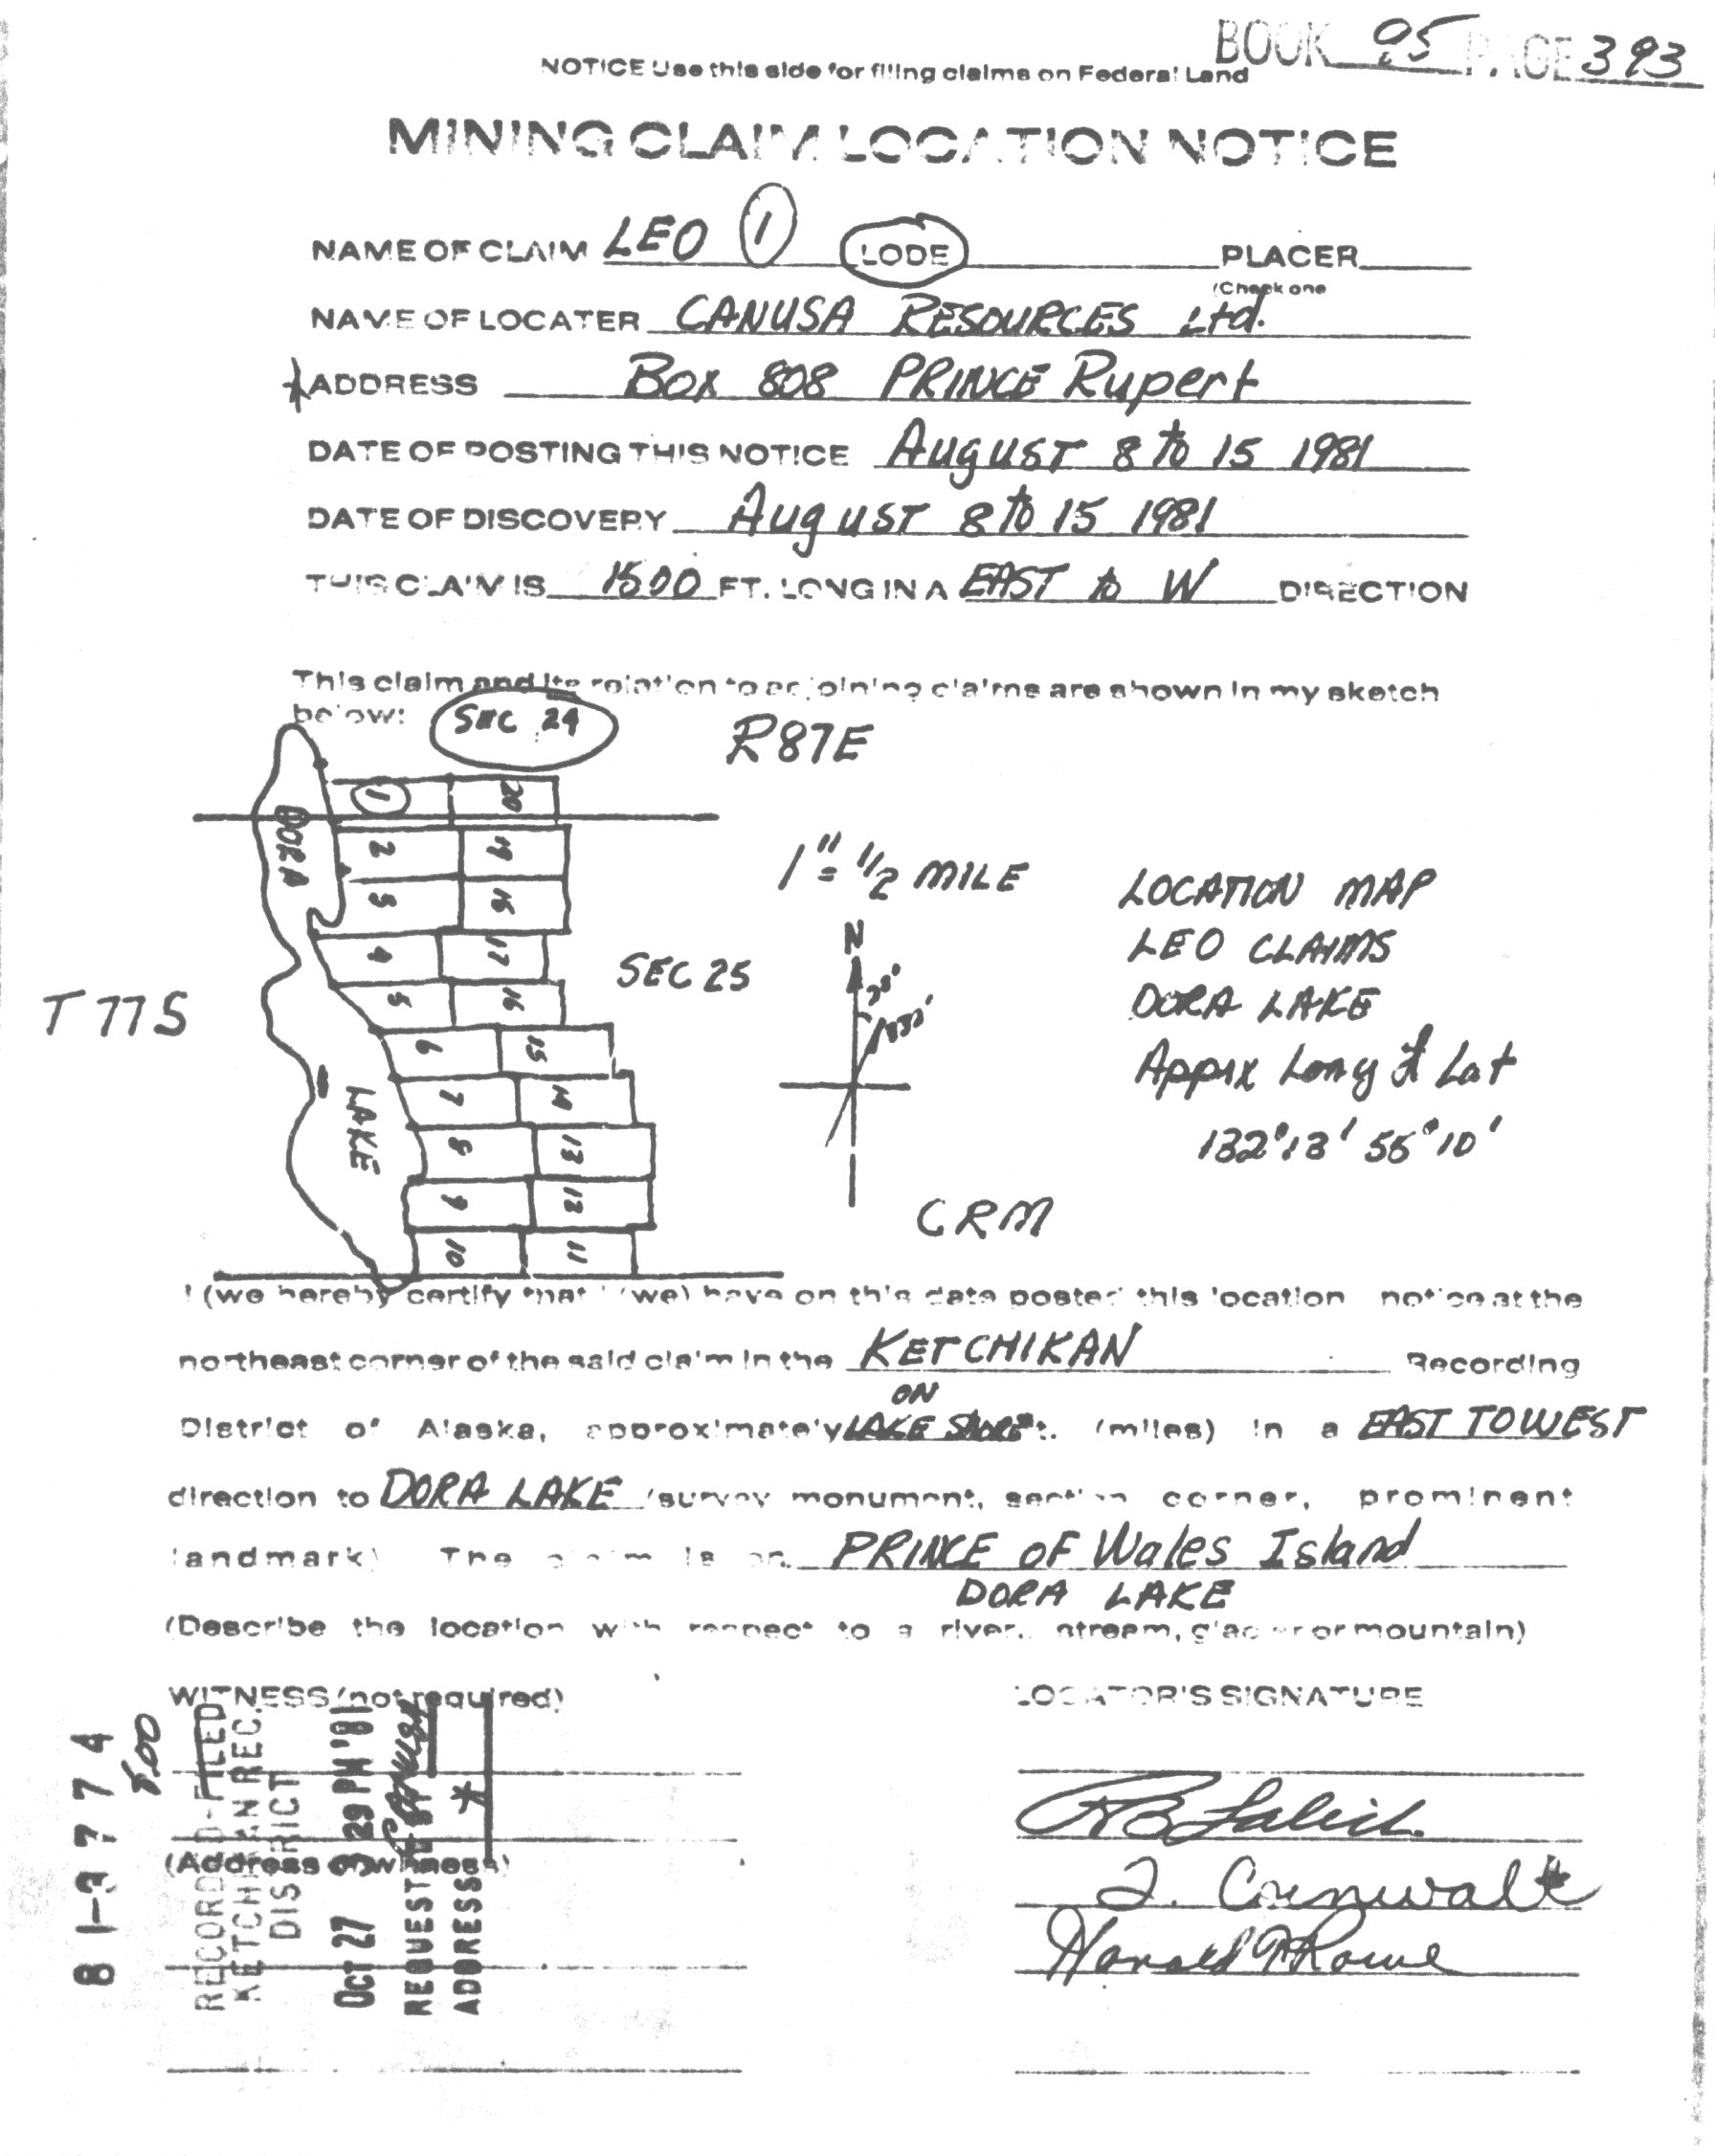 BOOK 95 PAGE 393
NOTICE Use this side for filing claims on Federal Land
MINING CLAIM LOCATION NOTICE
NAME OF CLAIM LEO 1 LODE PLACER
(Check one
NAME OF LOCATER CANUSA RESOURCES Ltd.
ADDRESS Box 808 PRINCE Rupert
DATE OF POSTING THIS NOTICE August 8 to 15 1981
DATE OF DISCOVERY August 8 to 15 1981
THIS CLAIM IS 1500 FT. LONG IN A EAST to W DIRECTION
This claim and its relation to adjoining claims are shown in my sketch
below: SEC 24
R87E
1 20
DORA
2 19
3
4 17
5 16
6 15
7 14
8 13
9 12
10 11
LAKE
T77S
SEC 25
1" = 1/2 MILE
N
LOCATION MAP
LEO CLAIMS
DORA LAKE
Appix Long & Lat
132° 13' 55° 10'
CRM
I (we hereby certify that I (we) have on this date posted this location notice at the
northeast corner of the said claim in the KETCHIKAN Recording
ON
District of Alaska, approximately LAKE SHORE ft. (miles) in a EAST TO WEST
direction to DORA LAKE (survey monument, section corner, prominent
landmark) The claim is on PRINCE OF Wales Island
DORA LAKE
(Describe the location with respect to a river, stream, glacier or mountain)
WITNESS (not required)
LOCATOR'S SIGNATURE
(Address of witness)
81-3774
8.00
RECORDED-FILED
KETCHIKAN REC.
DISTRICT
OCT 27 3 29 PM '81
REQUESTED BY Canusa
ADDRESS *
J. Cornwall
Harold Rowe